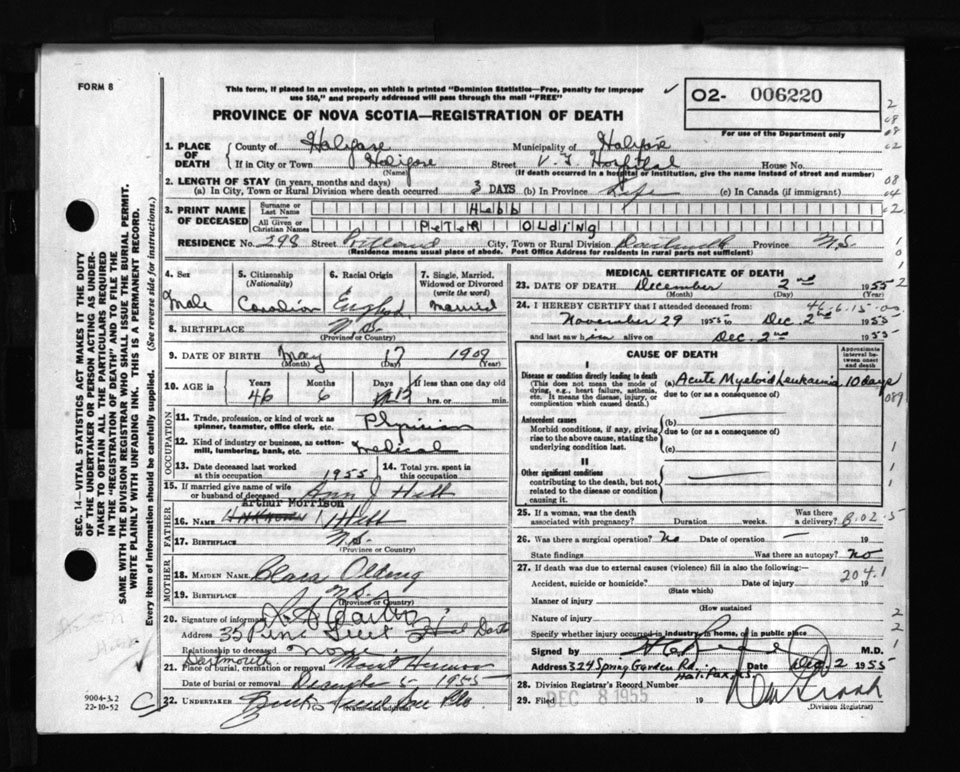 FORM 8
This form, if placed in an envelope, on which is printed "Dominion Statistics—Free, penalty for improper
use $50," and properly addressed will pass through the mail "FREE"
02- 006220
PROVINCE OF NOVA SCOTIA—REGISTRATION OF DEATH
For use of the Department only
1. PLACE OF DEATH
County of Halifax Municipality of Halifax
If in City or Town Halifax Street V. G. Hospital House No.
(Name) (If death occurred in a hospital or institution, give the name instead of street and number)
2. LENGTH OF STAY (in years, months and days)
(a) In City, Town or Rural Division where death occurred 3 DAYS (b) In Province Life (c) In Canada (if immigrant)
3. PRINT NAME OF DECEASED
Surname or Last Name Hebb
All Given or Christian Names PETER OLDING
RESIDENCE No. 298 Street Portland City, Town or Rural Division Dartmouth Province N.S.
(Residence means usual place of abode. Post Office Address for residents in rural parts not sufficient)
4. Sex Male
5. Citizenship (Nationality) Canadian
6. Racial Origin English
7. Single, Married, Widowed or Divorced (write the word) Married
8. BIRTHPLACE N.S.
(Province or Country)
9. DATE OF BIRTH May 17 1909
(Month) (Day) (Year)
10. AGE in Years 46 Months 6 Days If less than one day old
hrs. or min.
OCCUPATION
11. Trade, profession, or kind of work as spinner, teamster, office clerk, etc. Physician
12. Kind of industry or business, as cotton-mill, lumbering, bank, etc. Medical
13. Date deceased last worked at this occupation 1955
14. Total yrs. spent in this occupation
15. If married give name of wife or husband of deceased Ann J Hebb
FATHER
Arthur Morrison
16. NAME Unknown Hebb
17. BIRTHPLACE N.S.
(Province or Country)
MOTHER
18. MAIDEN NAME Clara Olding
19. BIRTHPLACE N.S.
(Province or Country)
20. Signature of informant
Address 35 Pine Street Dart
Relationship to deceased none
Dartmouth
21. Place of burial, cremation or removal Mount Hermon
Date of burial or removal December 5 1955
22. UNDERTAKER
(Name and address)
MEDICAL CERTIFICATE OF DEATH
23. DATE OF DEATH December 2nd 1955
(Month) (Day) (Year)
24. I HEREBY CERTIFY that I attended deceased from:
November 29 1955 to Dec. 2nd 1955
and last saw him alive on Dec. 2nd 1955
CAUSE OF DEATH
Approximate interval between onset and death
I
Disease or condition directly leading to death
(This does not mean the mode of dying, e.g., heart failure, asthenia, etc. It means the disease, injury, or complication which caused death.)
(a) Acute Myeloid Leukaemia 10 days
due to (or as a consequence of)
Antecedent causes
Morbid conditions, if any, giving rise to the above cause, stating the underlying condition last.
(b)
due to (or as a consequence of)
(c)
II
Other significant conditions
contributing to the death, but not related to the disease or condition causing it.
25. If a woman, was the death associated with pregnancy? Duration weeks. Was there a delivery?
26. Was there a surgical operation? No Date of operation — 19
State findings Was there an autopsy? No
27. If death was due to external causes (violence) fill in also the following:—
204.1
Accident, suicide or homicide? Date of injury 19
(State which)
Manner of injury
(How sustained
Nature of injury
Specify whether injury occurred in industry, in home, or in public place
Signed by M.D.
Address 324 Spring Garden Rd. Date Dec. 2 1955
Halifax, N.S.
28. Division Registrar's Record Number
29. Filed DEC 8 1955 19
(Division Registrar)
SEC. 14—VITAL STATISTICS ACT MAKES IT THE DUTY
OF THE UNDERTAKER OR PERSON ACTING AS UNDER-
TAKER TO OBTAIN ALL THE PARTICULARS REQUIRED
IN THE "REGISTRATION OF DEATH" AND TO FILE THE
SAME WITH THE DIVISION REGISTRAR WHO SHALL ISSUE THE BURIAL PERMIT.
WRITE PLAINLY WITH UNFADING INK. THIS IS A PERMANENT RECORD.
Every item of Information should be carefully supplied. (See reverse side for instructions.)
9004-3.2
22-10-52